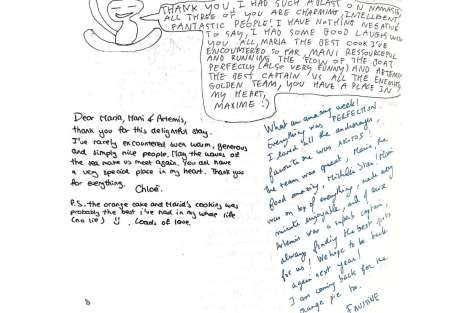 THANK YOU, I HAD SUCH A BLAST ON NAMASTE
ALL THREE OF YOU ARE CHARMING, INTELLIGENT
FANTASTIC PEOPLE! I HAVE NOTHING NEGATIVE
TO SAY, I HAD SOME GOOD LAUGHS WITH
YOU ALL, MARIA THE BEST COOK I'VE
ENCOUNTERED SO FAR, MANI RESSOURCEFUL
AND RUNNING THE FLOW OF THE BOAT
PERFECTLY (ALSO VERY FUNNY) AND ARTEMIS
THE BEST CAPTAIN
GOLDEN TEAM, YOU HAVE A PLACE IN
MY HEART,
MAXIME :)
Dear Maria, Mani & Artemis,
thank you for this delightful stay.
I've rarely encountered such warm, generous
and simply nice people. May the waves of
the sea make us meet again. You all have
a very special place in my heart. Thank you
for everything.
Chloé.
P.S. the orange cake and Maria's cooking was
probably the best I've had in my whole life
(no lie) Loads of love
What an amazing week!
Everything was PERFECTION.
I loved all the anchorages,
favorite one was
the team was great, Maria, the
food amazing,
was on top of everything, made every
minute enjoyable, and of course
Artemis was a superb captain,
always finding the best spots
for us! We hope to be back
again next year!
I am coming back for the
orange pie too.
FAUSTINE